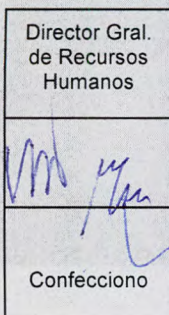 Director Gral.
de Recursos
Humanos
Confecciono